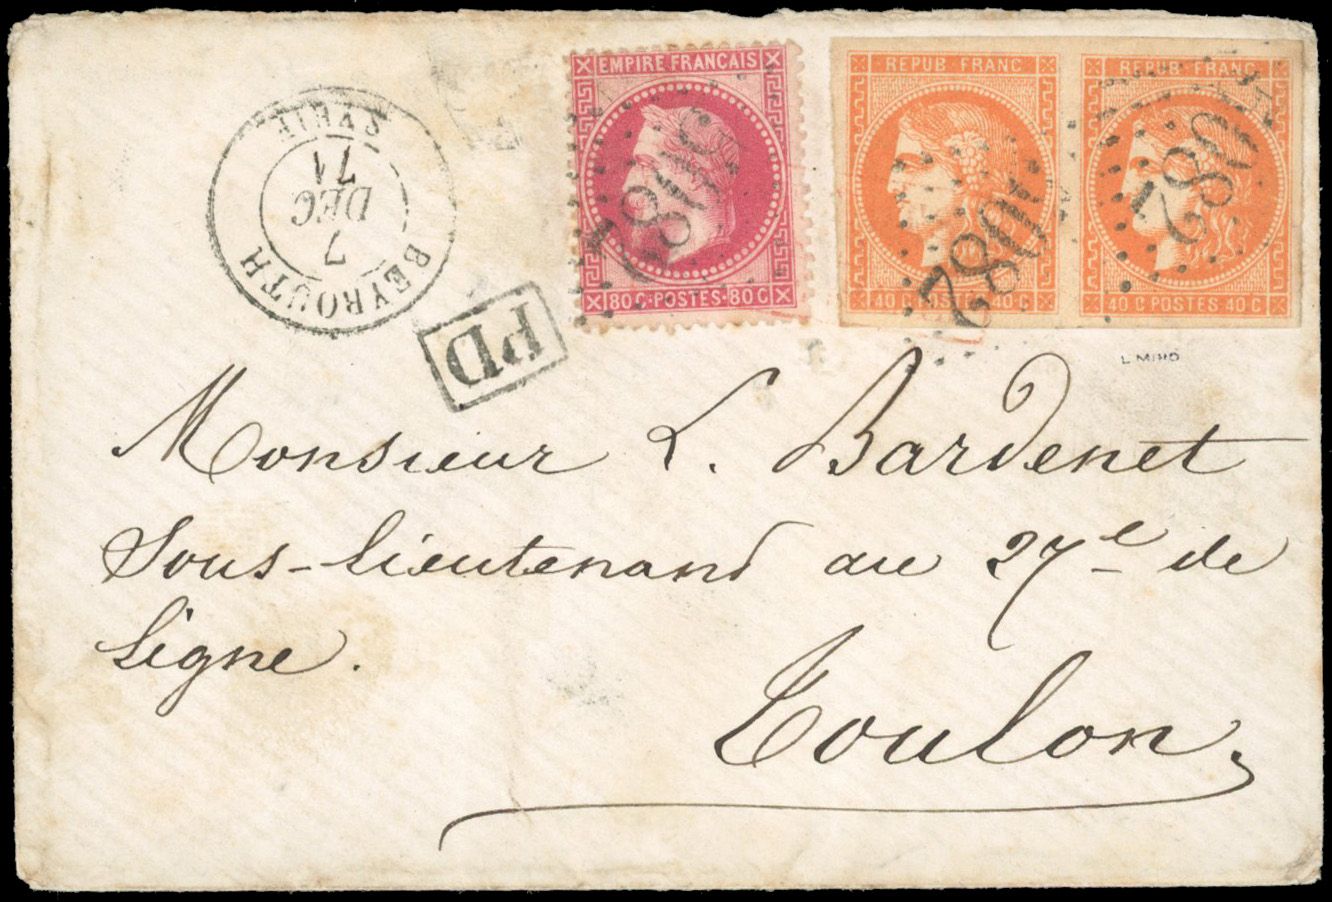 BEYROUTH
7
DEC
71
SYRIE
PD
EMPIRE FRANÇAIS
80 C · POSTES · 80 C
5082
REPUB FRANC
40 C POSTES 40 C
5082
REPUB FRANC
40 C POSTES 40 C
5082
Monsieur L. Bardenet
Sous-lieutenant au 27e de
Ligne.
Toulon,